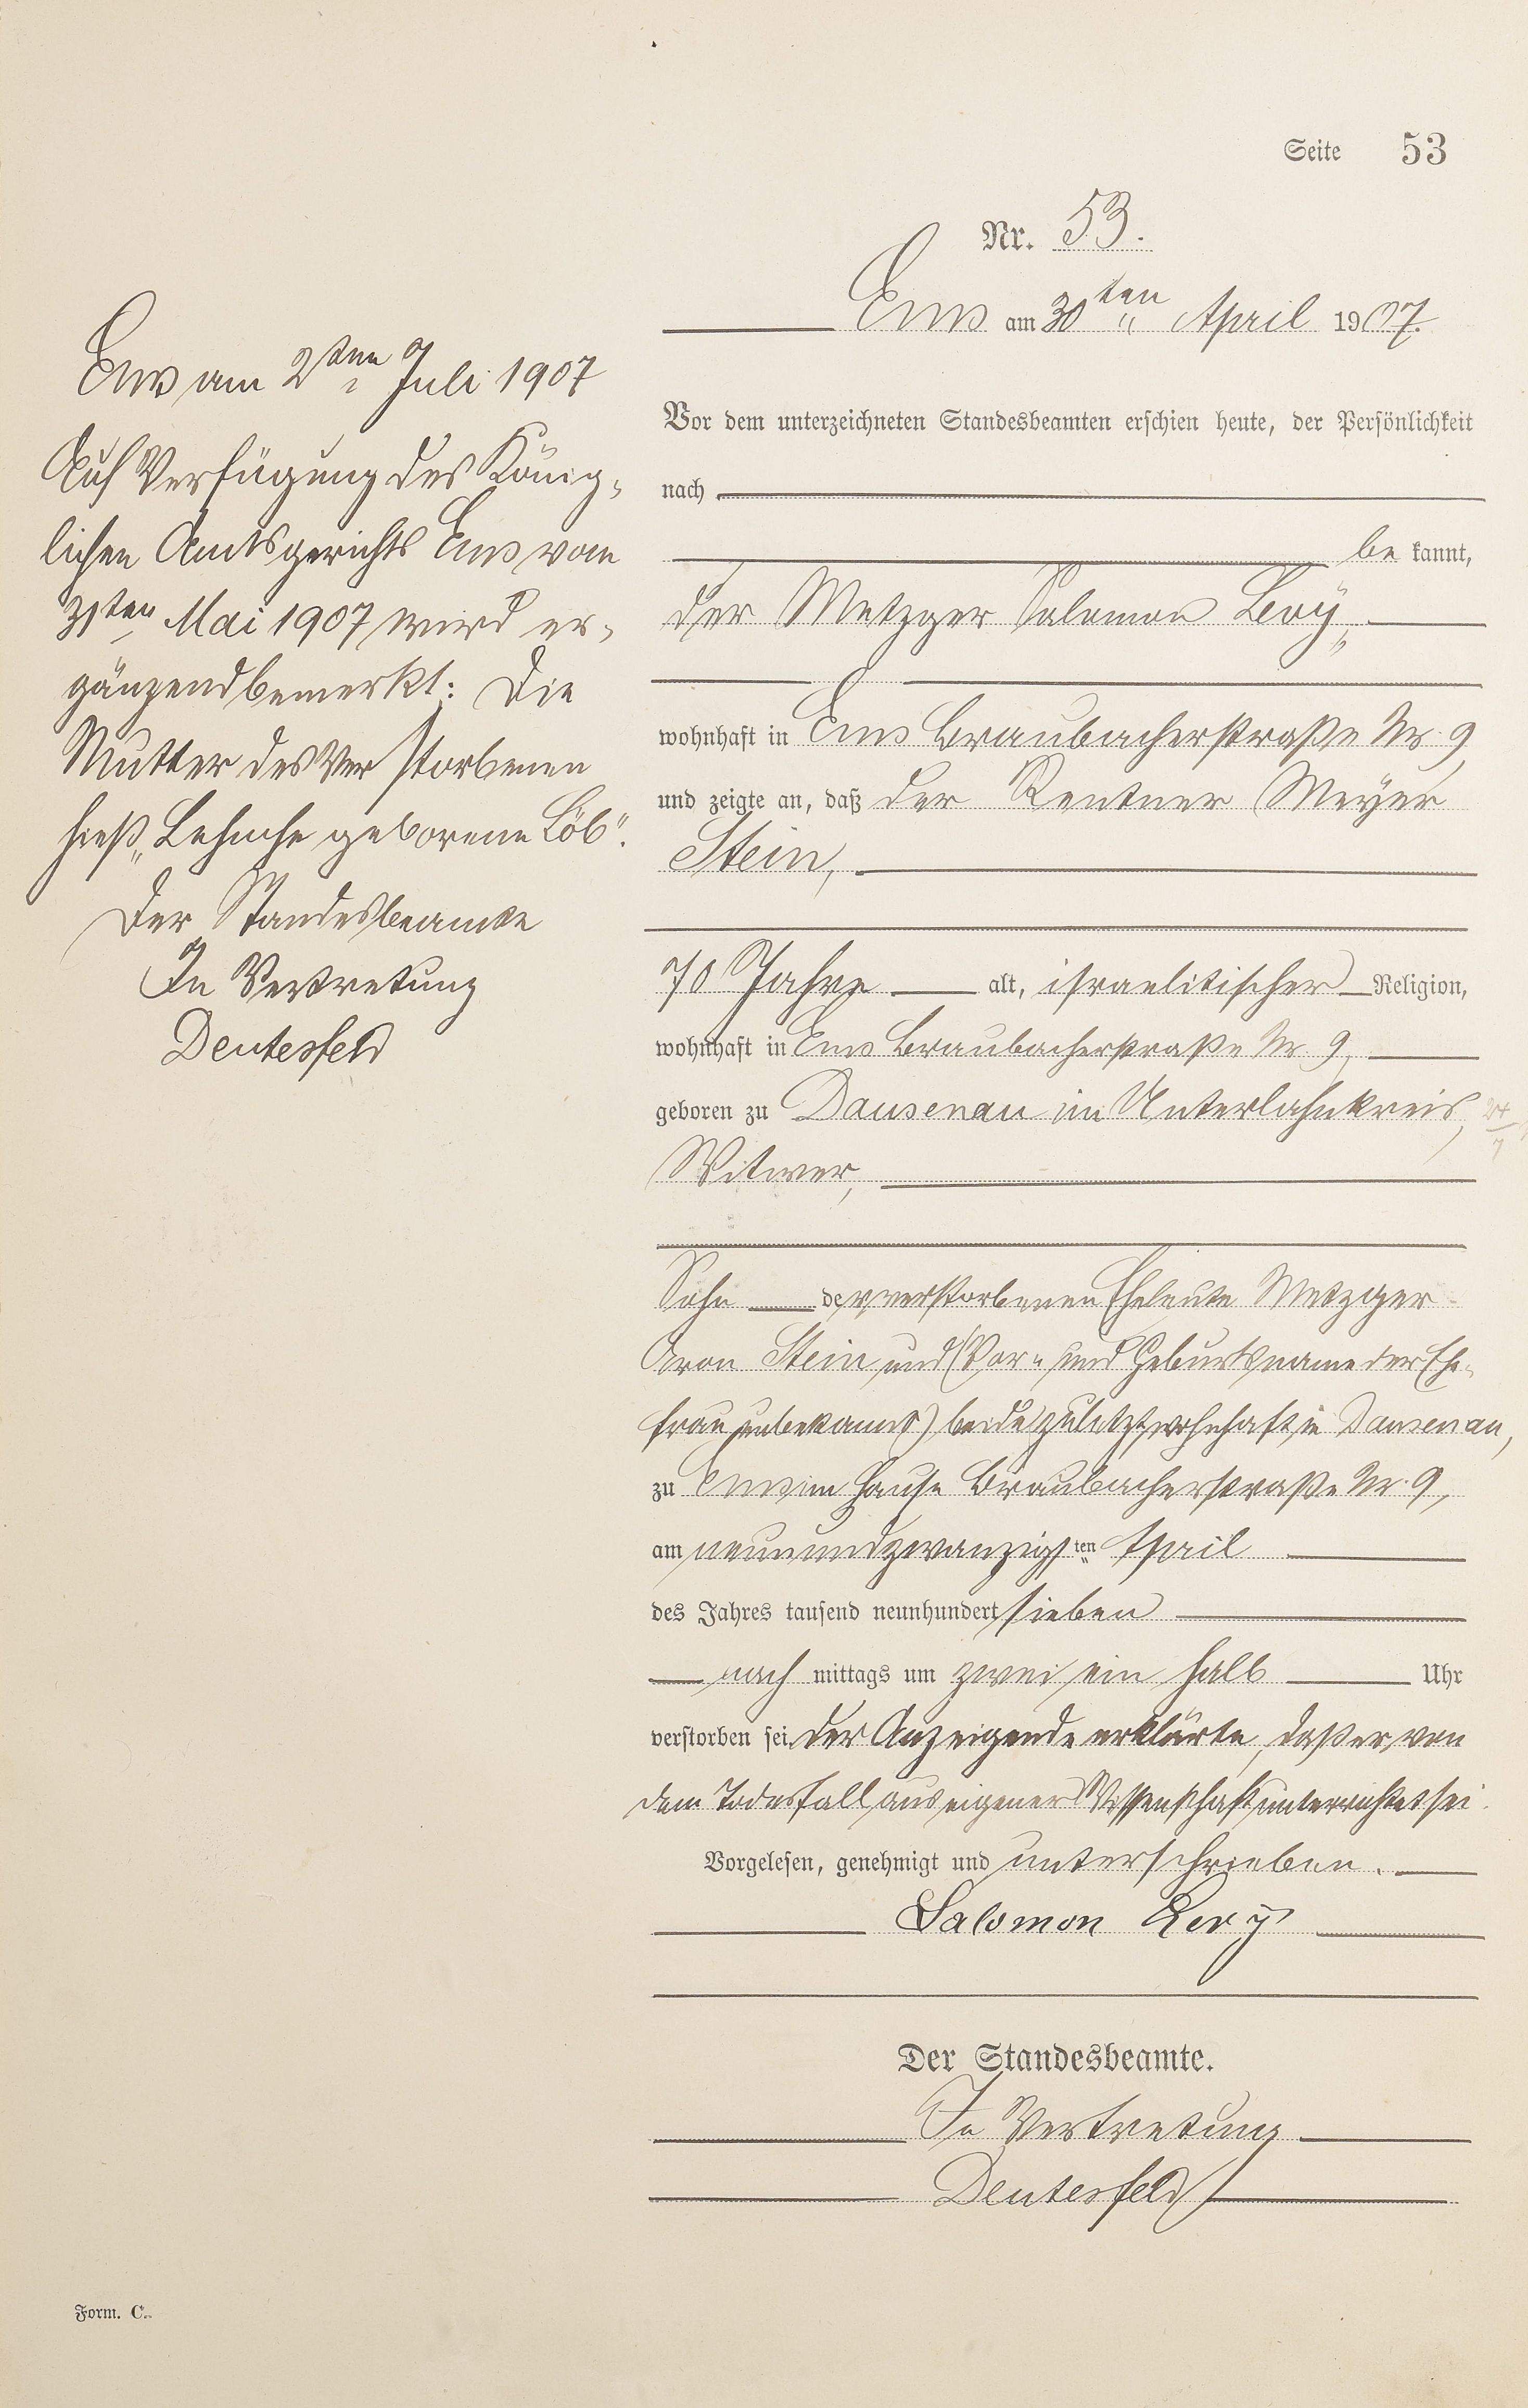 Seite 53
Nr. 53.
Ems am 30ten April 1907.
Vor dem unterzeichneten Standesbeamten erschien heute, der Persönlichkeit
nach
be kannt,
der Metzger Salomon Levÿ,
wohnhaft in Ems Braubacherstraße Nr. 9
und zeigte an, daß der Rentner Meyer
Stein,
70 Jahre alt, israelitischer Religion,
wohnhaft in Ems Braubacherstraße Nr. 9,
geboren zu Dausenau im Unterlahnkreis,
Witwer,
Sohn der verstorbenen Eheleute Metzger
Aron Stein und (Vor- und Geburtsname der Ehe-
frau unbekannt) beide zuletzt wohnhaft in Dausenau,
zu Ems im Hause Braubacherstraße Nr. 9,
am neunundzwanzigsten April
des Jahres tausend neunhundert sieben
nach mittags um zwei ein halb Uhr
verstorben sei. Der Anzeigende erklärte, daß er von
dem Todesfall aus eigener Wissenschaft unterrichtet sei.
Vorgelesen, genehmigt und unterschrieben.
Salomon Levÿ
Der Standesbeamte.
In Vertretung
Deutesfeld
Ems am 2ten Juli 1907
Auf Verfügung des König-
lichen Amtsgerichts Ems vom
31ten Mai 1907 wird er-
gänzend bemerkt: Die
Mutter des Verstorbenen
hieß „Lehnche geborene Löb“.
Der Standesbeamte
In Vertretung
Deutesfeld
Form. C.